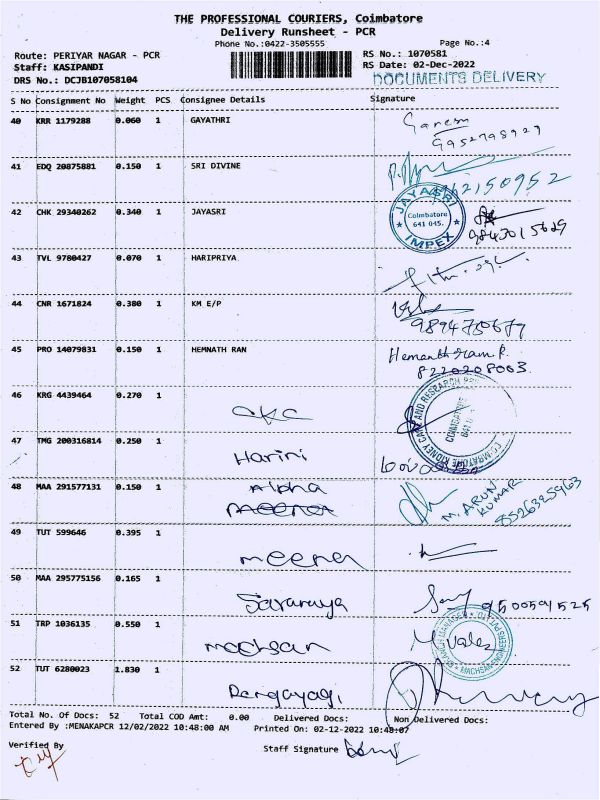 THE PROFESSIONAL COURIERS, Coimbatore
Delivery Runsheet - PCR
Phone No.:0422-3505555
Page No.:4
Route: PERIYAR NAGAR - PCR
RS No.: 1070581
Staff: KASIPANDI
RS Date: 02-Dec-2022
DRS No.: DCJB107058104
DOCUMENTS DELIVERY
S No Consignment No Weight PCS Consignee Details Signature
40 KRR 1179288 0.060 1 GAYATHRI
Ganesh
9952798929
41 EDQ 20875881 0.150 1 SRI DIVINE
42 CHK 29340262 0.340 1 JAYASRI
JAYASRI
Coimbatore
641 045.
IMPEX
9843015629
43 TVL 9780427 0.070 1 HARIPRIYA
44 CNR 1671824 0.380 1 KM E/P
45 PRO 14079831 0.150 1 HEMNATH RAN
Hemanth ram R.
8220208003.
46 KRG 4439464 0.270 1
CKC
47 TMG 200316814 0.250 1
Harini
48 MAA 291577131 0.150 1 Alpha
meena
M. ARUN
KUMAR
8526325963
49 TUT 599646 0.395 1
meena
50 MAA 295775156 0.165 1
9500591525
51 TRP 1036135 0.550 1
machsan
52 TUT 6280023 1.830 1
Total No. Of Docs: 52 Total COD Amt: 0.00 Delivered Docs: Non Delivered Docs:
Entered By :MENAKAPCR 12/02/2022 10:48:00 AM Printed On: 02-12-2022 10:48:07
Verified By
Staff Signature